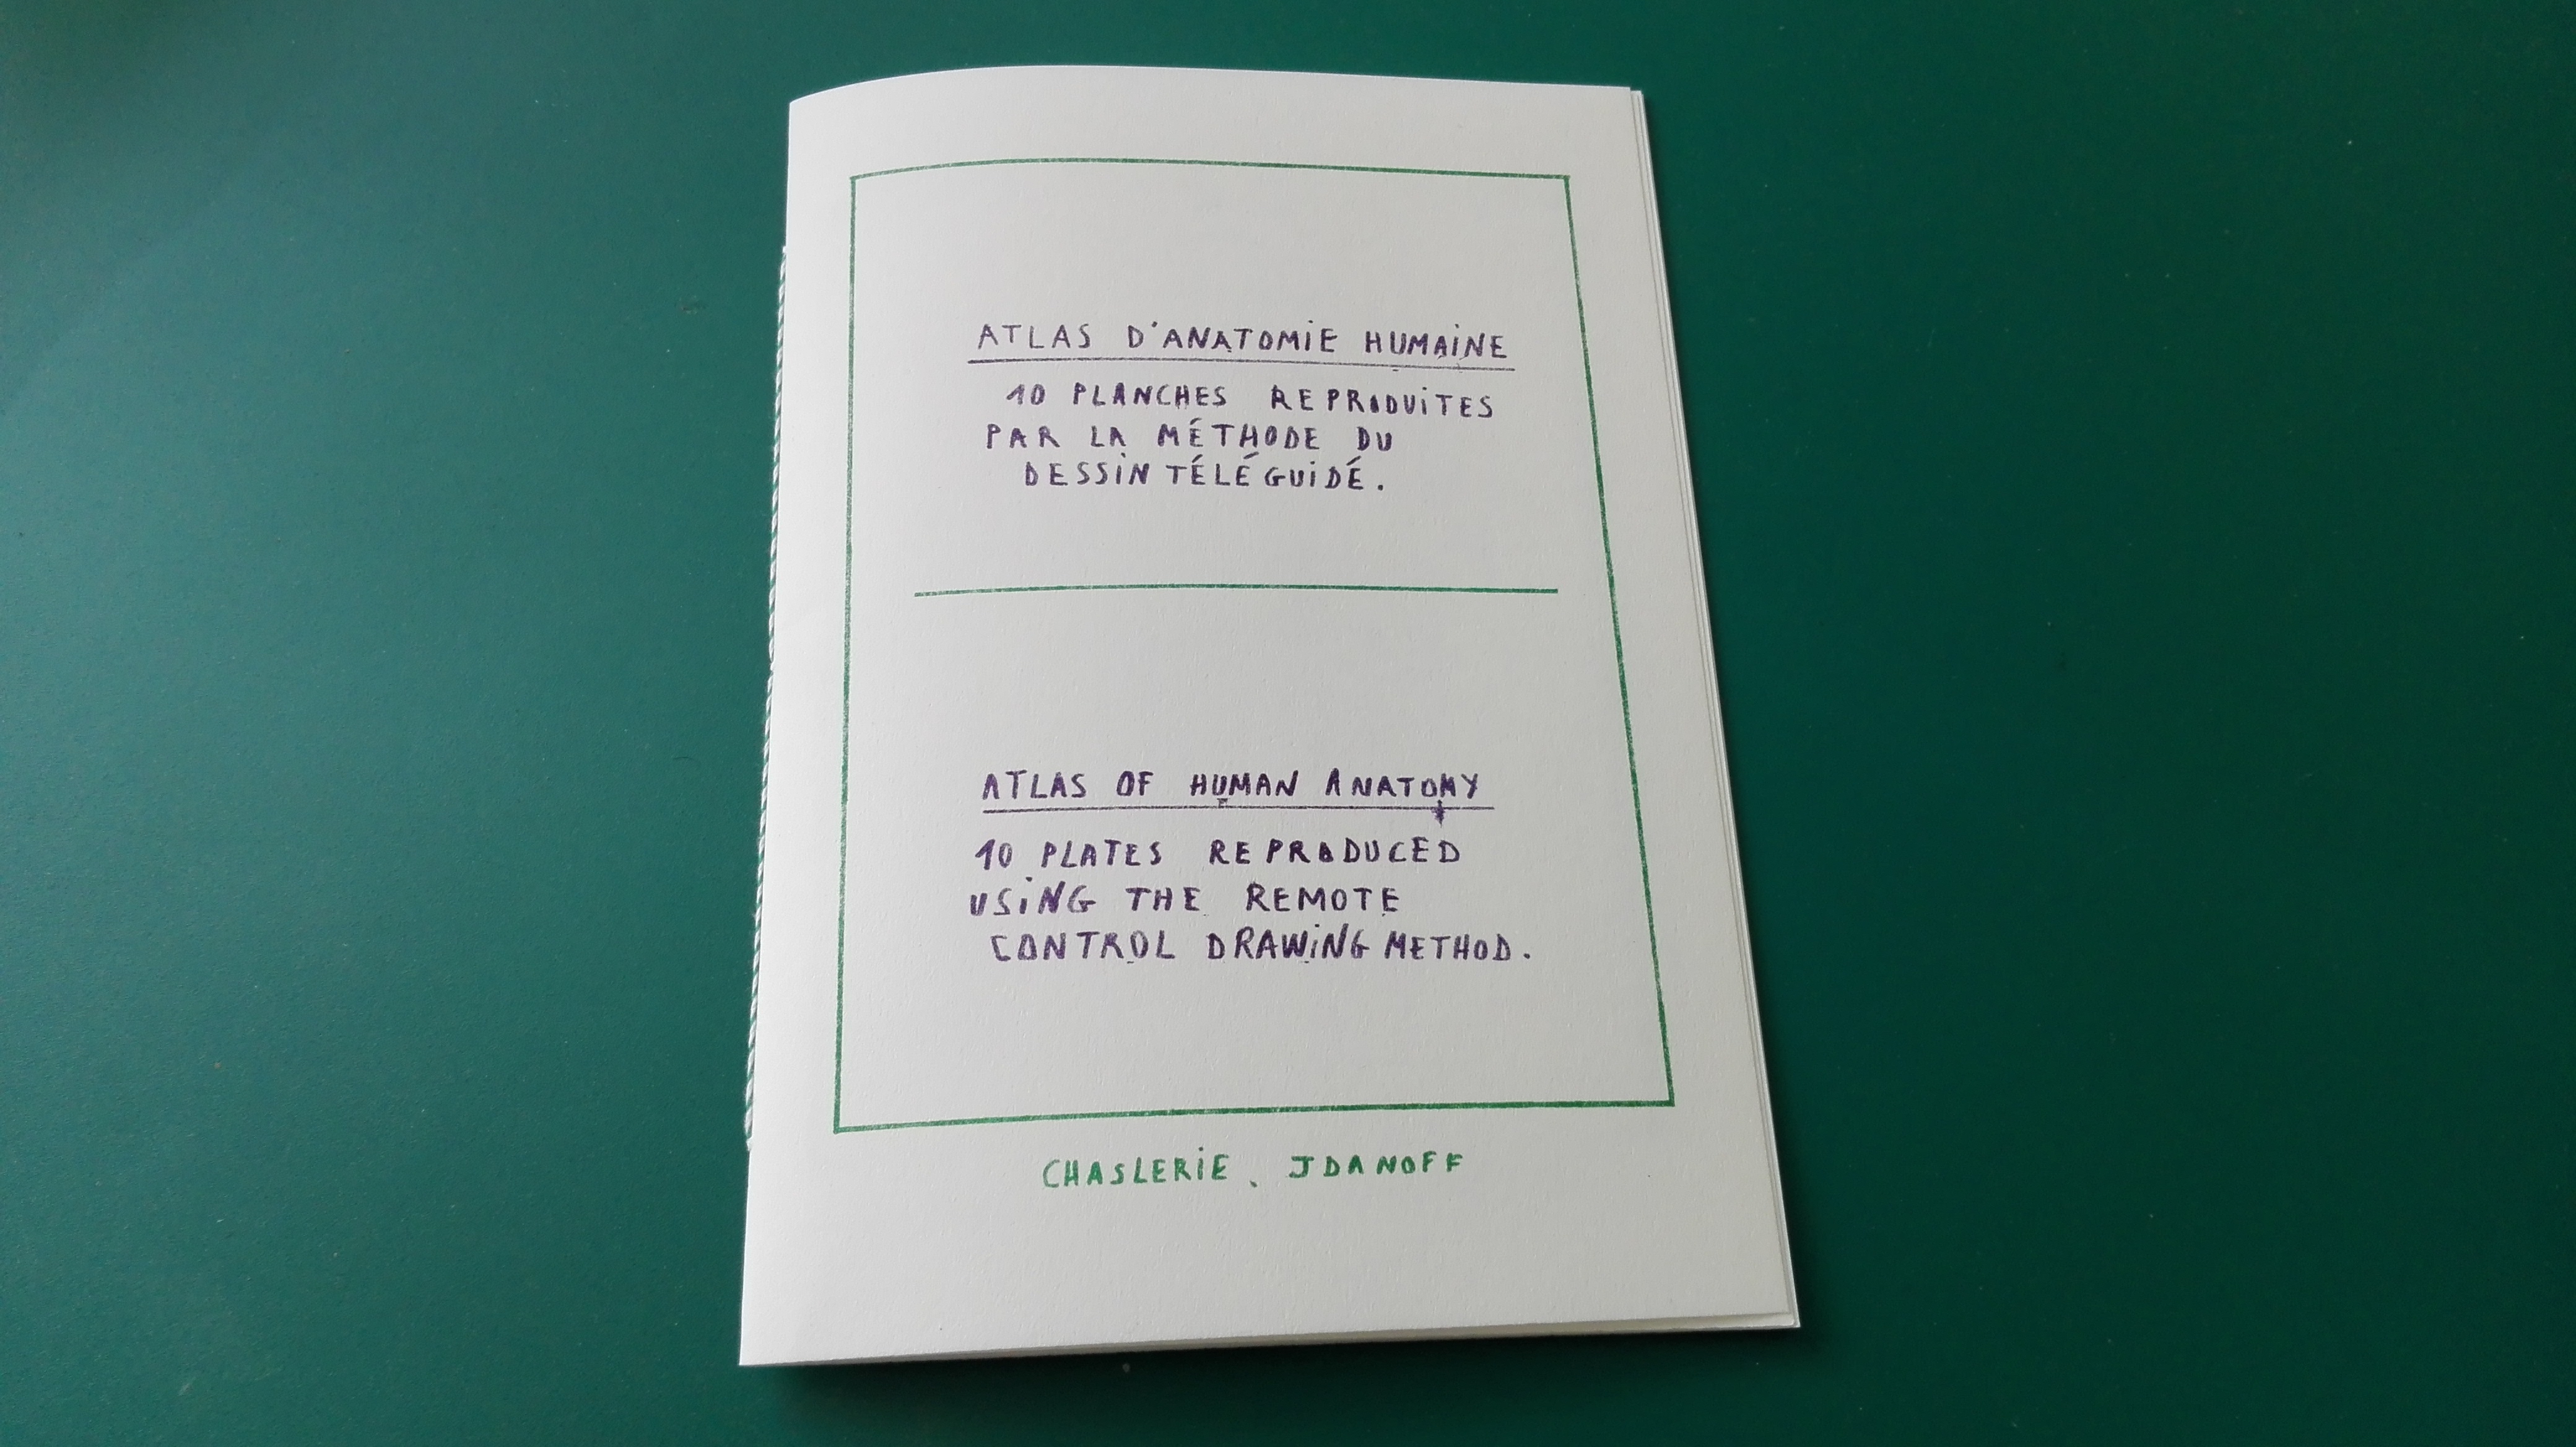 ATLAS D'ANATOMiE HUMAiNE
10 PLANCHES REPRODUiTES
PAR LA MÉTHODE DU
DESSiN TÉLÉGUiDÉ.
ATLAS OF HUMAN ANATOMY
10 PLATES REPRODUCED
USiNG THE REMOTE
CONTROL DRAWiNG METHOD.
CHASLERiE. JDANOFF